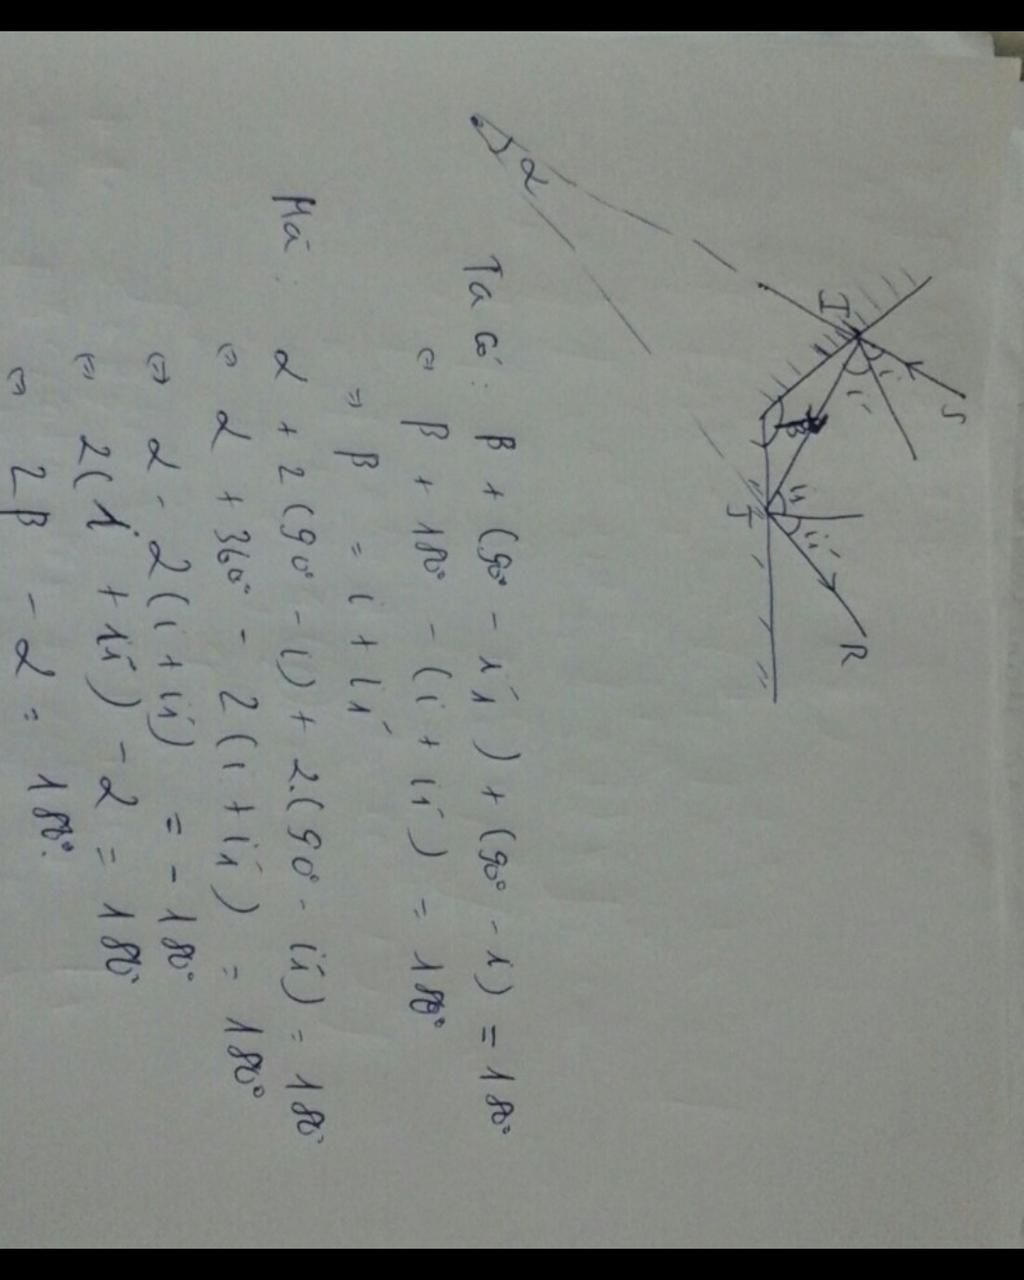 S
I
i
i'
β
i₁
i₁'
J
R
α
Ta có: β + (90° - i₁) + (90° - i) = 180°
⇔ β + 180° - (i + i₁) = 180°
⇒ β = i + i₁
Mà: α + 2(90° - i) + 2.(90° - i₁) = 180°
⇔ α + 360° - 2(i + i₁) = 180°
⇔ α - 2(i + i₁) = -180°
⇔ 2(i + i₁) - α = 180°
⇔ 2β - α = 180°.